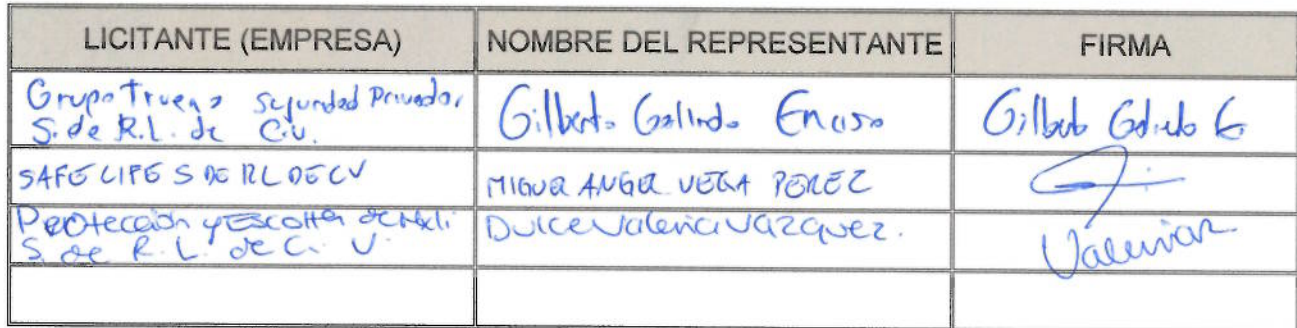 LICITANTE (EMPRESA) NOMBRE DEL REPRESENTANTE FIRMA
Grupo Trueno Seguridad Privada,
S. de R.L. de C.V. Gilberto Galindo Enciso Gilberto Galindo E.
SAFE LIFE S DE RL DE CV MIGUEL ANGEL VEGA PEREZ
Protección y Escolta de Mxli
S. de R. L. de C. V. Dulce Valencia Vazquez.